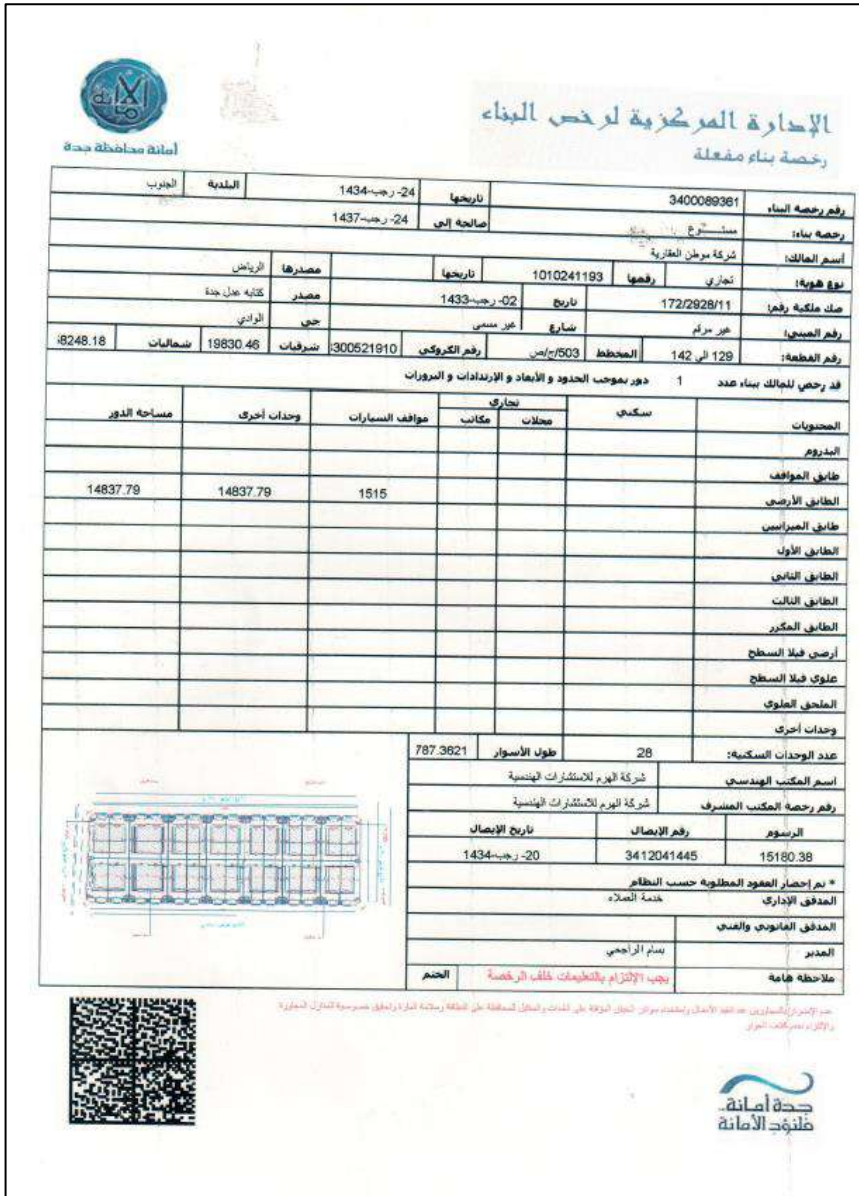 أمانة محافظة جدة
الإدارة المركزية لرخص البناء
رخصة بناء مفعلة
رقم رخصة البناء 3400089361 تاريخها 24- رجب-1434 البلدية الجنوب
رخصة بناء: صالحة إلى 24- رجب-1437
أسم المالك: شركة موطن العقارية
نوع هوية: تجاري رقمها 1010241193 تاريخها مصدرها الرياض
صك ملكية رقم: 172/2928/11 تاريخ 02- رجب-1433 مصدر كتابه عدل جدة
رقم المبنى: غير مرقم شارع غير مسمى حي الوادي
رقم القطعة: 129 الى 142 المخطط 503/ج/ص رقم الكروكي 300521910 شرقيات 19830.46 شماليات 8248.18
قد رخص للمالك ببناء عدد 1 دور بموجب الحدود و الأبعاد و الإرتدادات و البروزات
المحتويات سكني تجاري مواقف السيارات وحدات أخرى مساحة الدور
محلات مكاتب
البدروم
طابق المواقف
الطابق الأرضي 1515 14837.79 14837.79
طابق الميزانيين
الطابق الأول
الطابق الثاني
الطابق الثالث
الطابق المكرر
أرضي فيلا السطح
علوي فيلا السطح
الملحق العلوي
وحدات أخرى
عدد الوحدات السكنية: 28 طول الأسوار 787.3621
اسم المكتب الهندسي شركة الهرم للاستشارات الهندسية
رقم رخصة المكتب المشرف شركة الهرم للاستشارات الهندسية
الرسوم رقم الإيصال تاريخ الإيصال
15180.38 3412041445 20- رجب-1434
* تم إحضار العقود المطلوبة حسب النظام
المدقق الإداري خدمة العملاء
المدقق القانوني والفني
المدير بسام الراجحي
ملاحظة هامة يجب الإلتزام بالتعليمات خلف الرخصة الختم
جدة أمانة..
فلنؤد الأمانة